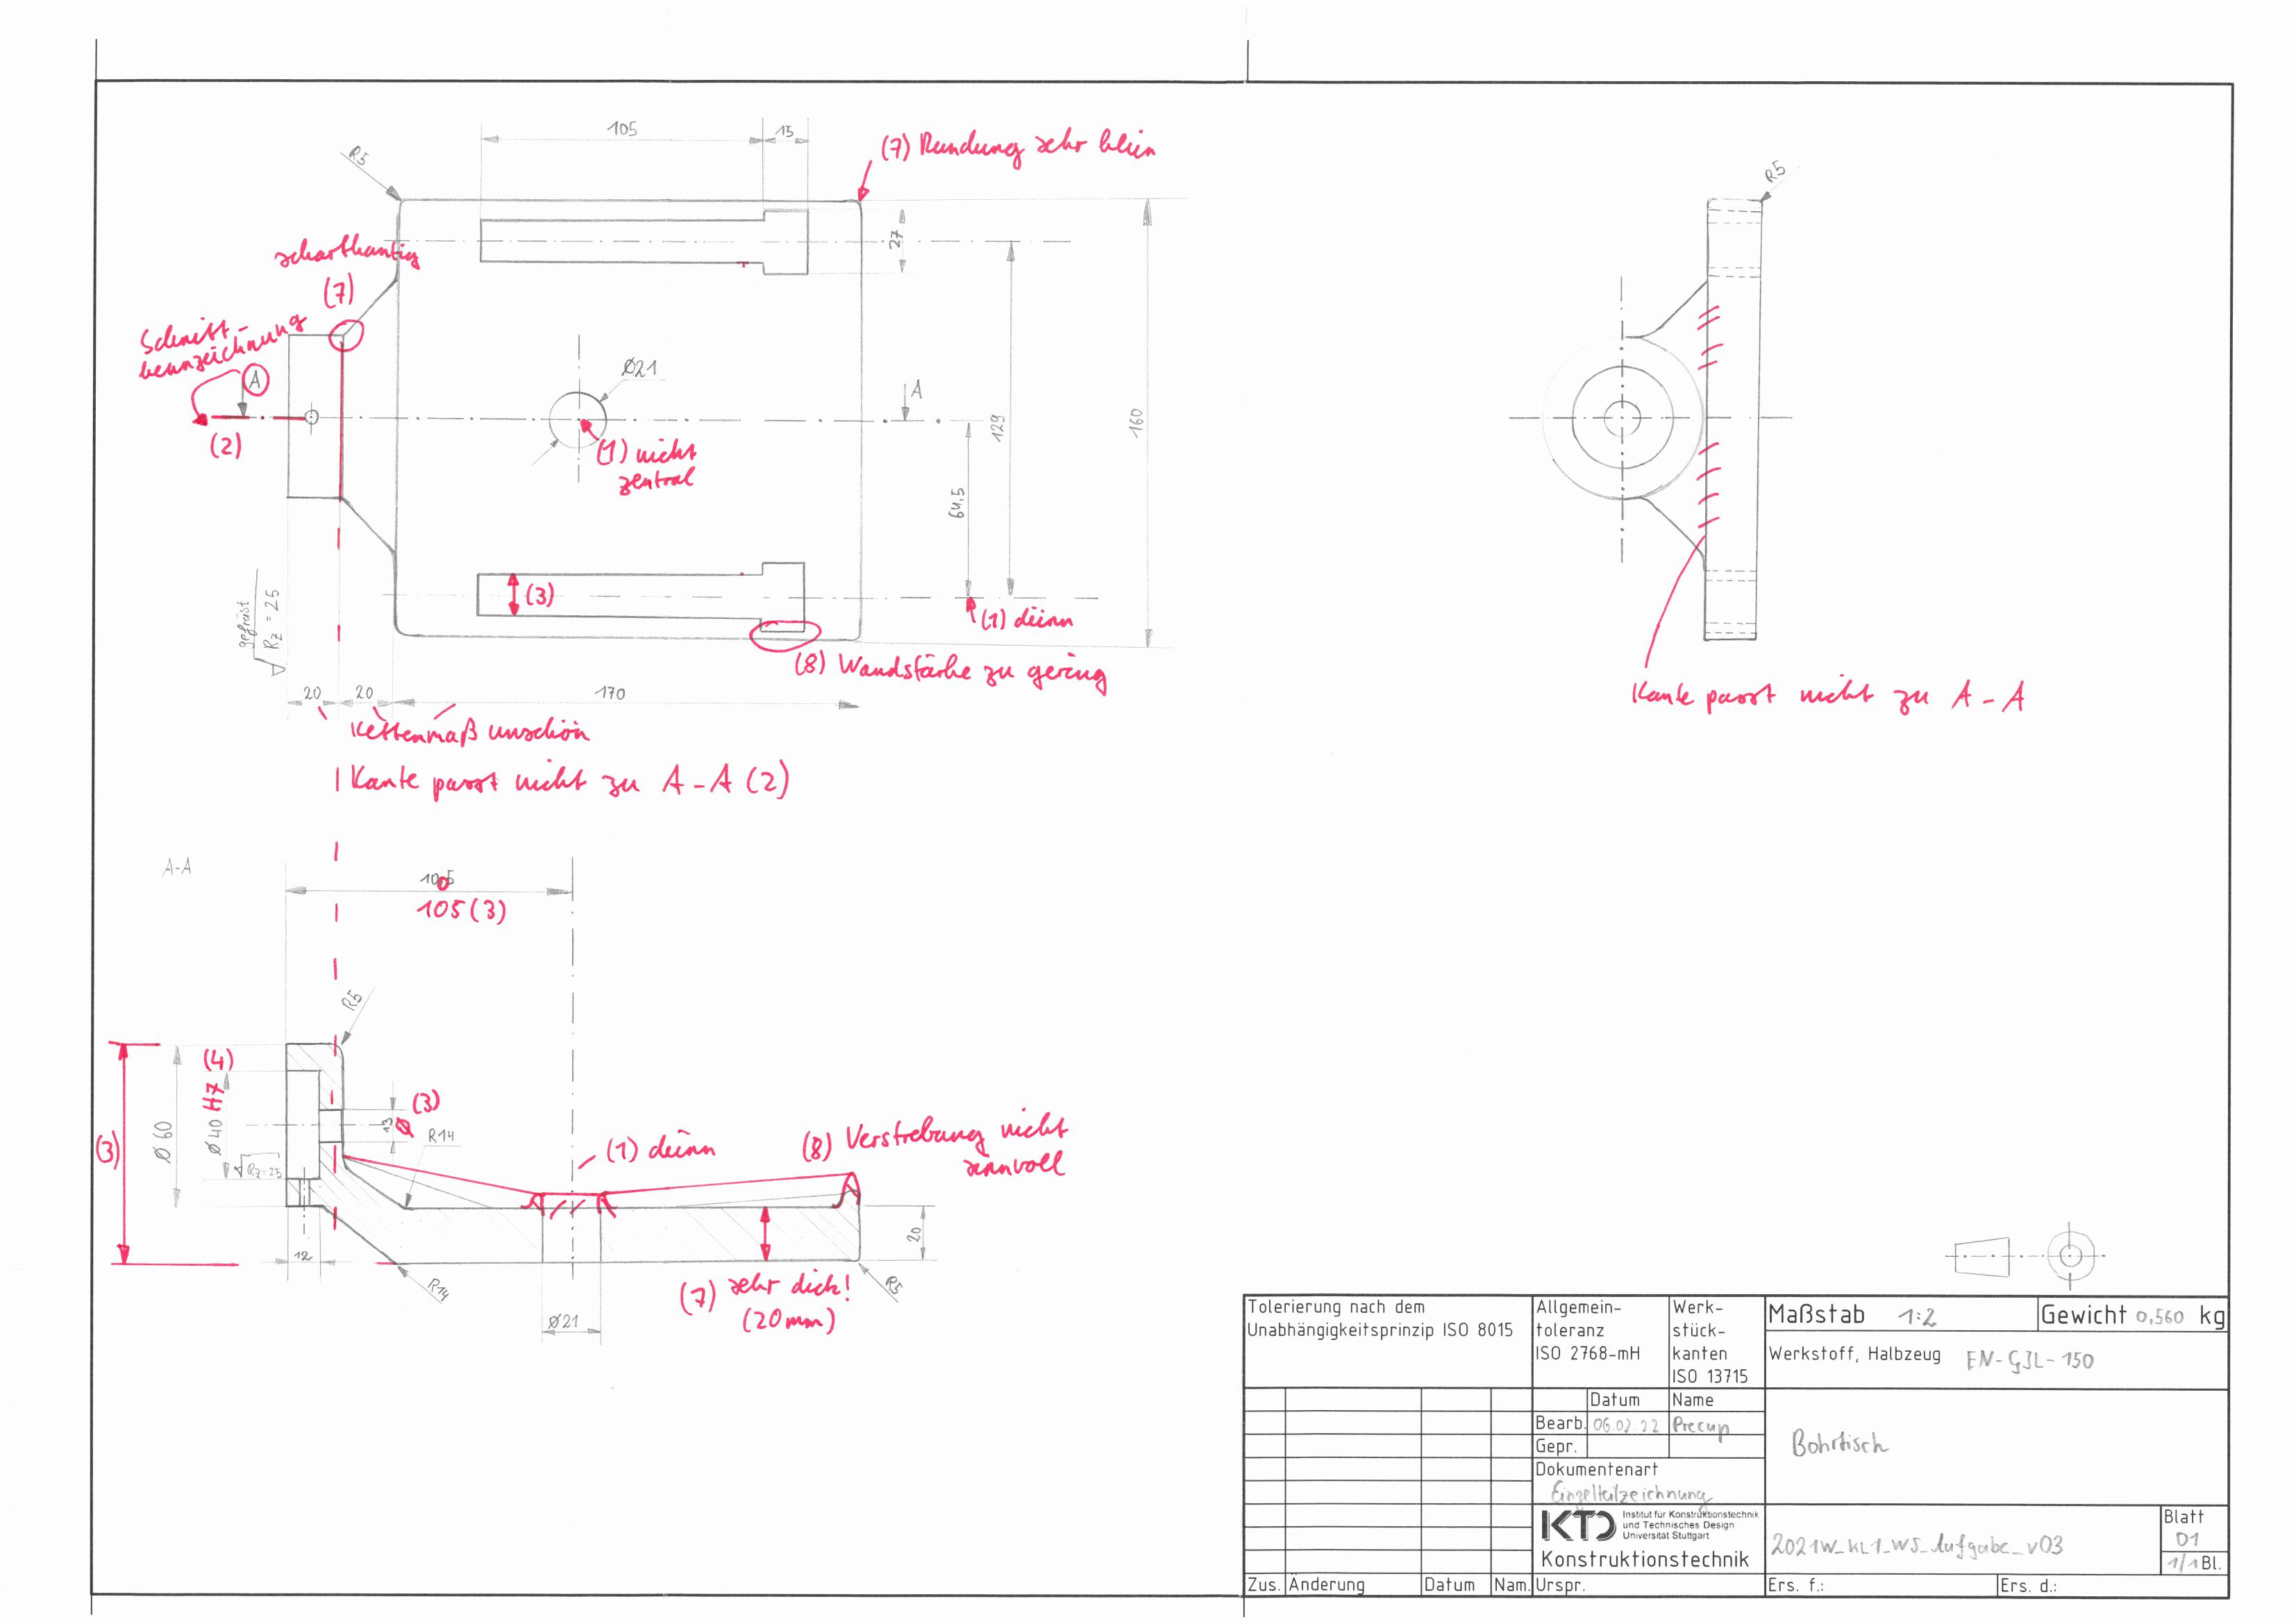 105
15
R5
(7) Rundung sehr klein
R5
27
scharfkantig
(7)
Schnitt-
kennzeichnung
A
(2)
Ø21
A
(1) nicht
zentral
129
160
64,5
(3)
(1) dünn
gefräst
Rz = 25
(8) Wandstärke zu gering
20
20
170
Kettenmaß unschön
Kante passt nicht zu A-A (2)
Kante passt nicht zu A-A
A-A
105 (3)
R5
(4)
(3)
Ø 60
Ø 40 H7
13
Ø
(3)
R14
Rz=25
(1) dünn
(8) Verstrebung nicht
sinnvoll
20
12
R14
Ø21
(7) sehr dick!
(20mm)
R5
Tolerierung nach dem
Unabhängigkeitsprinzip ISO 8015
Allgemein-
toleranz
ISO 2768-mH
Werk-
stück-
kanten
ISO 13715
Maßstab 1:2
Gewicht 0,560 kg
Werkstoff, Halbzeug EN-GJL-150
Datum
Name
Bearb. 06.02.22 Precup
Gepr.
Dokumentenart
Einzelteilzeichnung
Bohrtisch
KTD
Institut für Konstruktionstechnik
und Technisches Design
Universität Stuttgart
Konstruktionstechnik
2021W_KL1_W5_Aufgabe_v03
Blatt
01
1/1 Bl.
Zus. Änderung Datum Nam. Urspr.
Ers. f.:
Ers. d.: